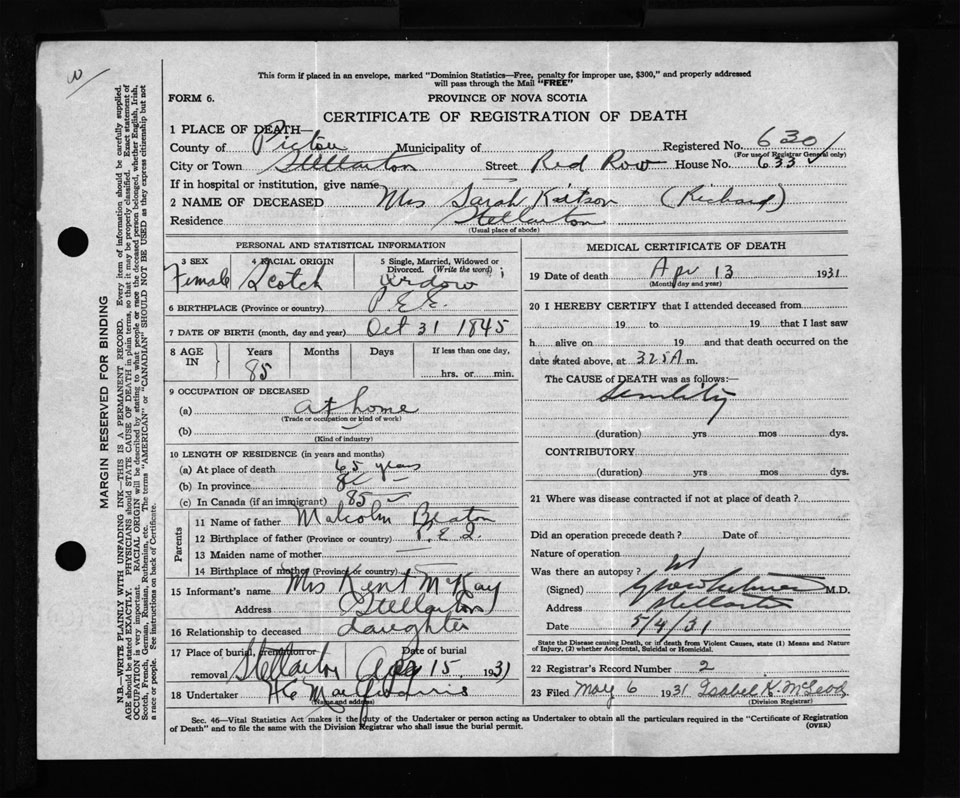 This form if placed in an envelope, marked "Dominion Statistics—Free, penalty for improper use, $300," and properly addressed
will pass through the Mail "FREE"
FORM 6.
PROVINCE OF NOVA SCOTIA
CERTIFICATE OF REGISTRATION OF DEATH
1 PLACE OF DEATH—
County of Pictou Municipality of Registered No. 630
(For use of Registrar General only)
City or Town Stellarton Street Red Row House No. 633
If in hospital or institution, give name
2 NAME OF DECEASED Mrs Sarah Kitson (Richard)
Residence Stellarton
(Usual place of abode)
PERSONAL AND STATISTICAL INFORMATION
3 SEX 4 RACIAL ORIGIN 5 Single, Married, Widowed or Divorced. (Write the word)
Female Scotch Widow
6 BIRTHPLACE (Province or country) P.E.I.
7 DATE OF BIRTH (month, day and year) Oct 31 1845
8 AGE IN Years Months Days If less than one day,
85 hrs. or min.
9 OCCUPATION OF DECEASED
(a) at home
(Trade or occupation or kind of work)
(b)
(Kind of industry)
10 LENGTH OF RESIDENCE (in years and months)
(a) At place of death 65 years
(b) In province
(c) In Canada (if an immigrant) 85
Parents
11 Name of father Malcolm Beaton
12 Birthplace of father (Province or country) P.E.I.
13 Maiden name of mother
14 Birthplace of mother (Province or country)
15 Informant's name Mrs Kent McKay
Address Stellarton
16 Relationship to deceased daughter
17 Place of burial, cremation or removal Date of burial
Stellarton Apr 15 1931
18 Undertaker
(Name and address)
MEDICAL CERTIFICATE OF DEATH
19 Date of death Apr 13 1931
(Month, day and year)
20 I HEREBY CERTIFY that I attended deceased from
19 to 19 that I last saw
h alive on 19 and that death occurred on the
date stated above, at 325 A m.
The CAUSE of DEATH was as follows:—
Senility
(duration) yrs mos dys.
CONTRIBUTORY
(duration) yrs mos dys.
21 Where was disease contracted if not at place of death ?
Did an operation precede death ? Date of
Nature of operation
Was there an autopsy ?
(Signed) M.D.
Address Stellarton
Date 5/4/31
State the Disease causing Death, or in death from Violent Causes, state (1) Means and Nature
of Injury, (2) whether Accidental, Suicidal or Homicidal.
22 Registrar's Record Number 2
23 Filed May 6 1931 Isabel K. McLeod
(Division Registrar)
Sec. 46—Vital Statistics Act makes it the duty of the Undertaker or person acting as Undertaker to obtain all the particulars required in the "Certificate of Registration
of Death" and to file the same with the Division Registrar who shall issue the burial permit.
(OVER)
MARGIN RESERVED FOR BINDING
N.B.—WRITE PLAINLY WITH UNFADING INK—THIS IS A PERMANENT RECORD. Every item of information should be carefully supplied.
AGE should be stated EXACTLY. PHYSICIANS should STATE CAUSE OF DEATH in plain terms, so that it may be properly classified. Exact statement of
OCCUPATION is very important. RACIAL ORIGIN will be described by stating to what people or race the deceased person belonged, whether English, Irish,
Scotch, French, German, Russian, Ruthenian, etc. The terms "AMERICAN" or "CANADIAN" SHOULD NOT BE USED as they express citizenship but not
a race or people. See instructions on back of Certificate.